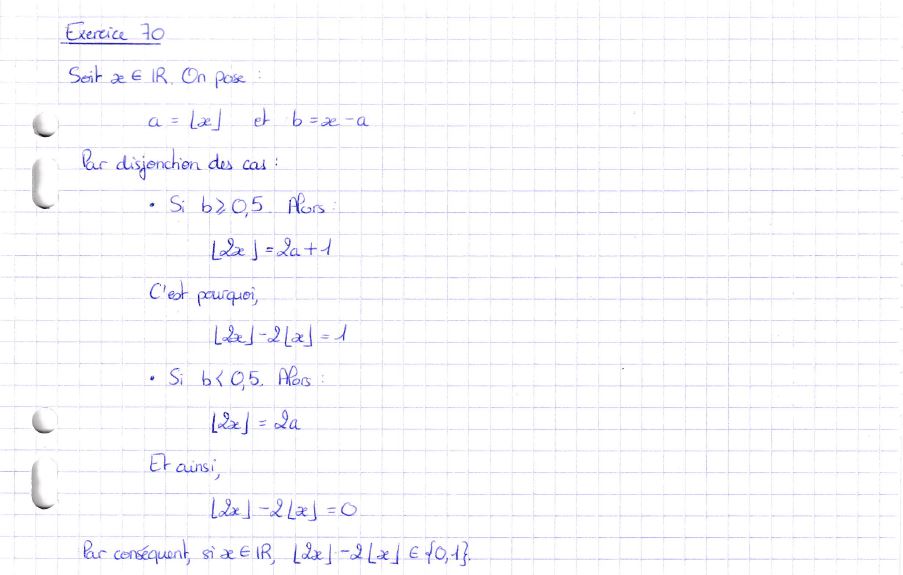 Exercice 70
Soit x ∈ IR. On pose :
a = ⌊x⌋ et b = x - a
Par disjonction des cas :
• Si b ⩾ 0,5. Alors :
⌊2x⌋ = 2a + 1
C'est pourquoi,
⌊2x⌋ - 2⌊x⌋ = 1
• Si b < 0,5. Alors :
⌊2x⌋ = 2a
Et ainsi,
⌊2x⌋ - 2⌊x⌋ = 0
Par conséquent, si x ∈ IR, ⌊2x⌋ - 2⌊x⌋ ∈ {0,1}.